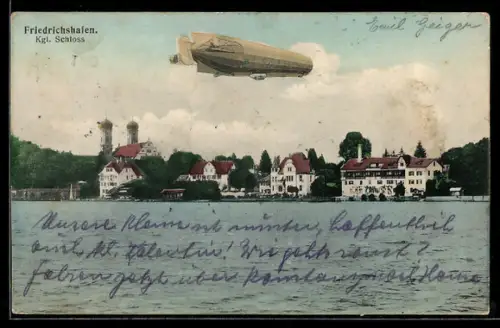 Friedrichshafen.
Kgl. Schloss
Emil Geiger
Unsere Kleine ist munter, hoffentlich
auch Wie geht sonst?
Fahren jetzt über Konstanz nach Hause